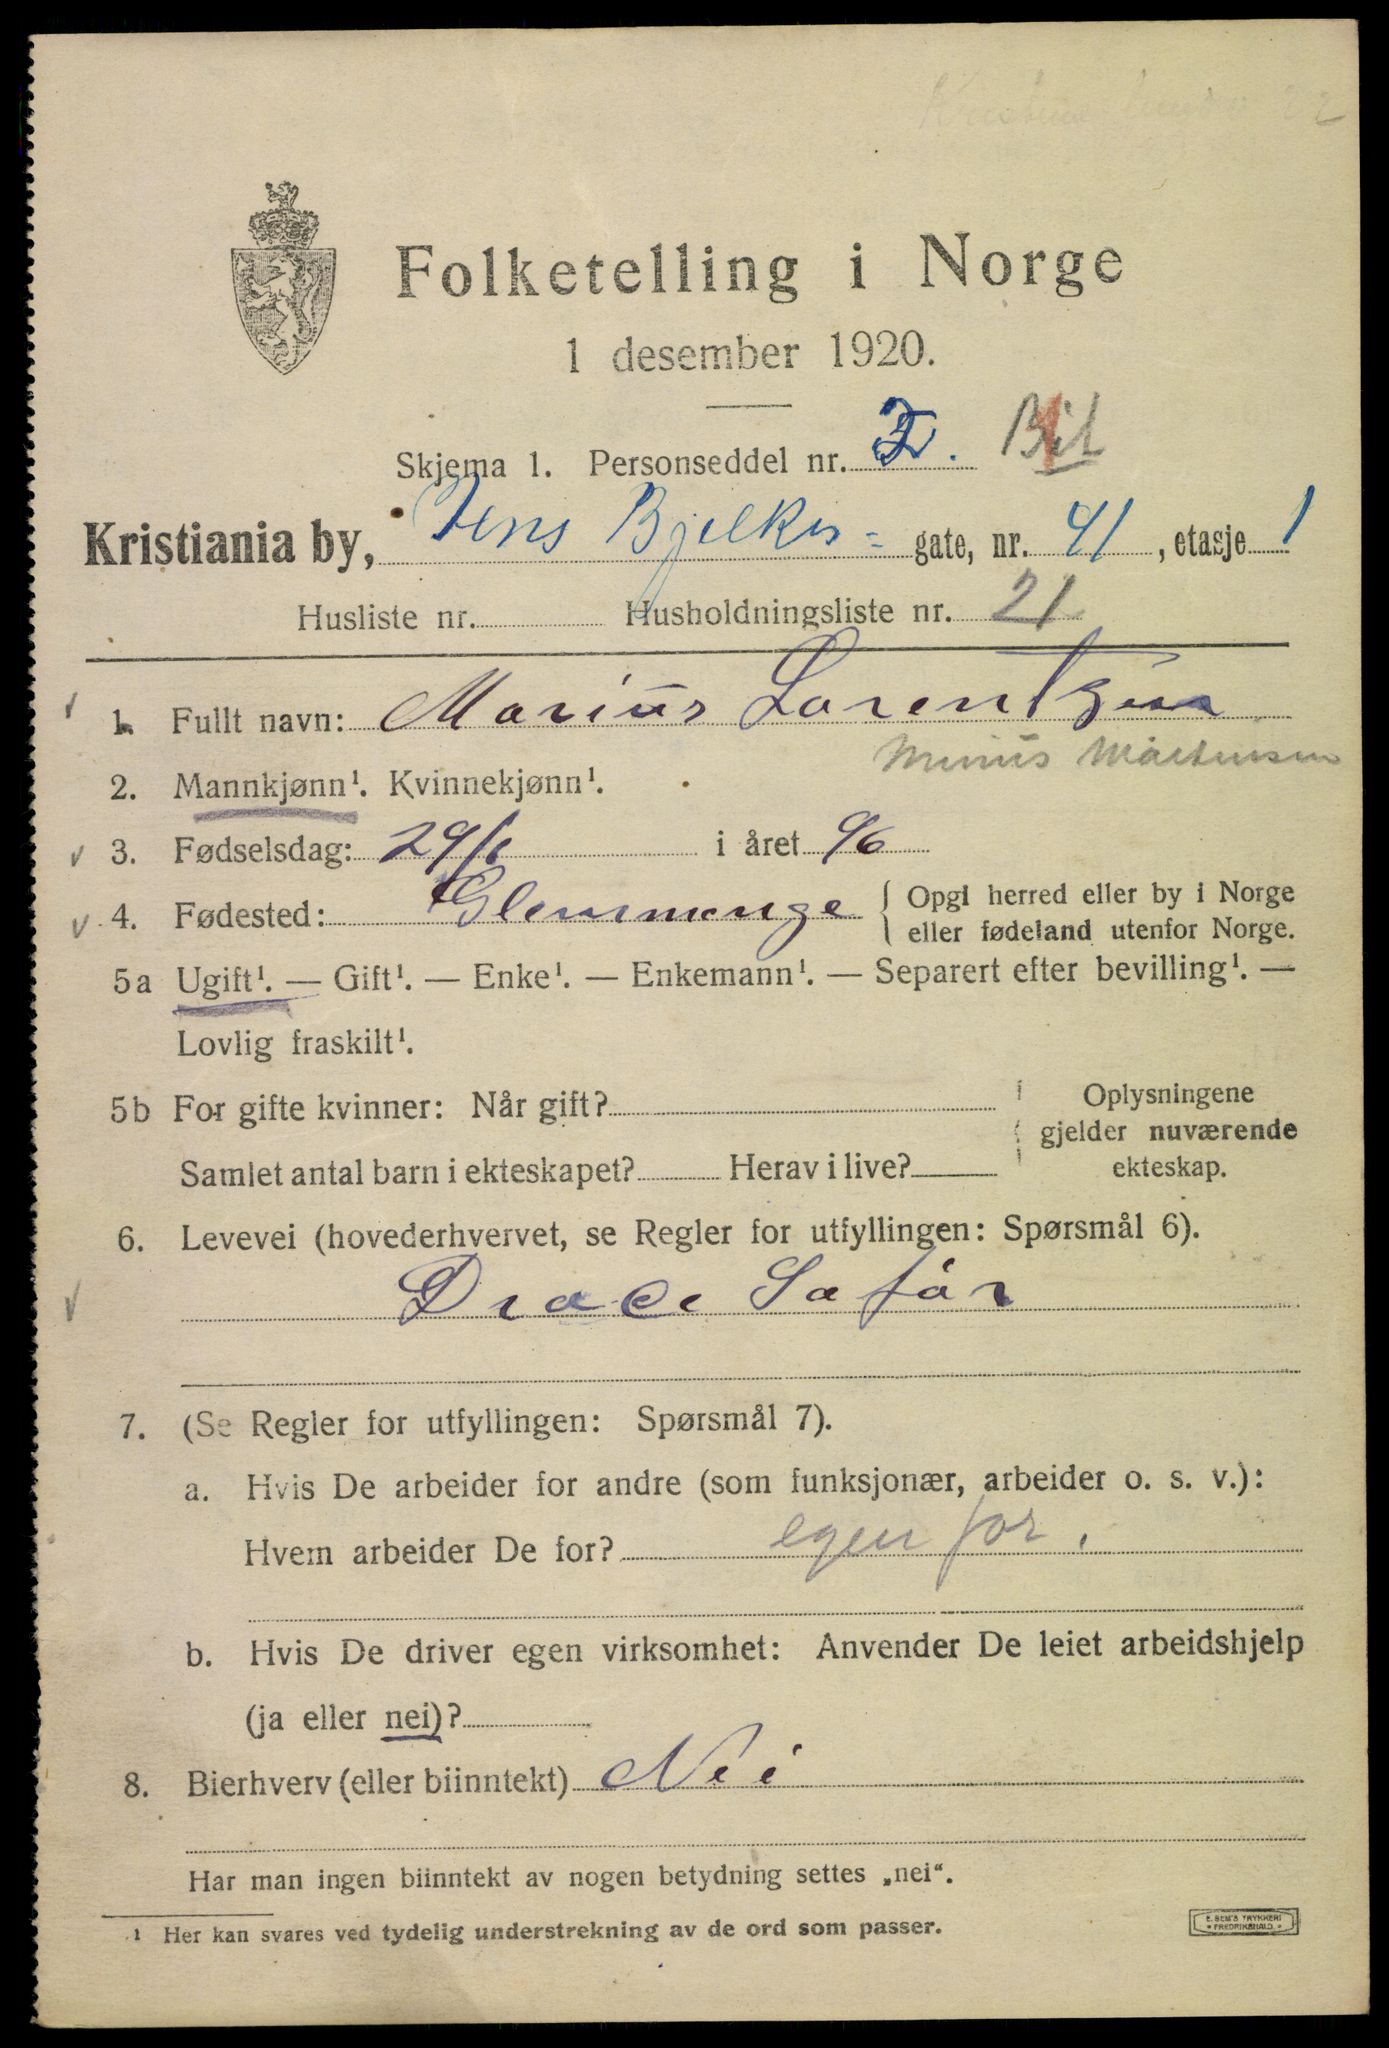 Folketelling i Norge
1 desember 1920.
Skjema 1. Personseddel nr. Bil
Kristiania by, Jens Bjelkes = gate, nr. 41, etasje 1
Husliste nr. Husholdningsliste nr. 21
1. Fullt navn: Marius Lorentzen
2. Mannkjønn¹. Kvinnekjønn¹.
3. Fødselsdag: 29/1 i året 96
4. Fødested: Glemmenge { Opgi herred eller by i Norge
eller fødeland utenfor Norge.
5a Ugift¹. — Gift¹. — Enke¹. — Enkemann¹. — Separert efter bevilling¹. —
Lovlig fraskilt¹.
5b For gifte kvinner: Når gift? Oplysningene
gjelder nuværende
Samlet antal barn i ekteskapet? Herav i live? ekteskap.
6. Levevei (hovederhvervet, se Regler for utfyllingen: Spørsmål 6).
Drace Safár
7. (Se Regler for utfyllingen: Spørsmål 7).
a. Hvis De arbeider for andre (som funksjonær, arbeider o. s. v.):
Hvem arbeider De for? egen for.
b. Hvis De driver egen virksomhet: Anvender De leiet arbeidshjelp
(ja eller nei)?
8. Bierhverv (eller biinntekt) Nei
Har man ingen biinntekt av nogen betydning settes „nei“.
¹ Her kan svares ved tydelig understrekning av de ord som passer.
E. SEM'S TRYKKERI
* FREDRIKSHALD. *